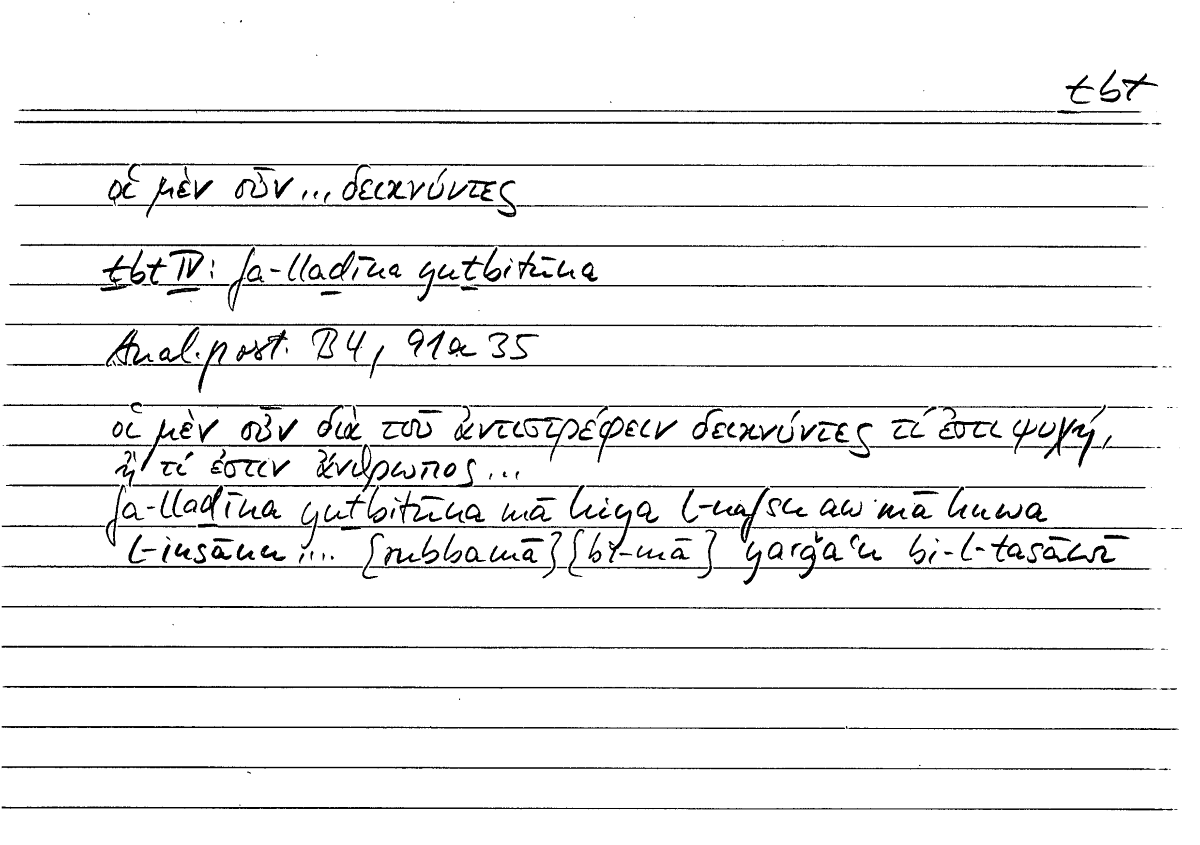 ṯbt
οἱ μὲν οὖν ... δεικνύντες
ṯbt IV: fa-lladīna yuṯbitūna
Anal. post. B 4, 91a 35
οἱ μὲν οὖν διὰ τοῦ ἀντιστρέφειν δεικνύντες τί ἐστι ψυχή,
ἢ τί ἐστιν ἄνθρωπος ...
fa-lladīna yuṯbitūna mā hiya l-nafsu aw mā huwa
l-insānu ... {rubbamā} {bi-mā} yarǧaʿu bi-l-tasāwī